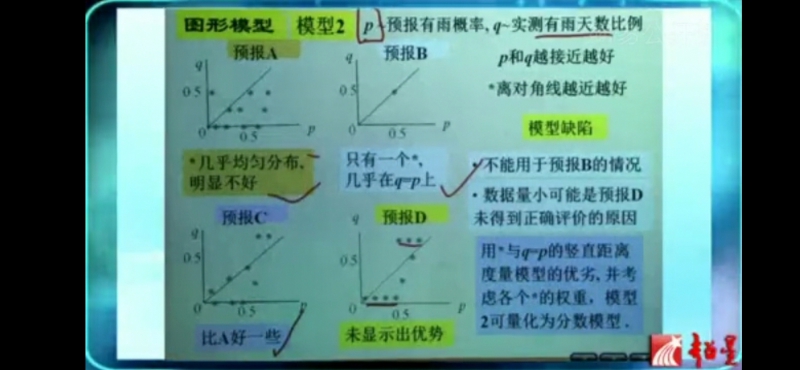 图形模型 模型2 p~预报有雨概率, q~实测有雨天数比例
预报A
q
0.5
0
0.5
p
预报B
q
0.5
0
0.5
p
p和q越接近越好
*离对角线越近越好
模型缺陷
*几乎均匀分布,
明显不好
只有一个*,
几乎在q=p上
·不能用于预报B的情况
·数据量小可能是预报D
未得到正确评价的原因
预报C
q
0.5
0
0.5
p
预报D
q
0.5
0
0.5
p
用*与q=p的竖直距离
度量模型的优劣, 并考
虑各个*的权重, 模型
2可量化为分数模型.
比A好一些
未显示出优势